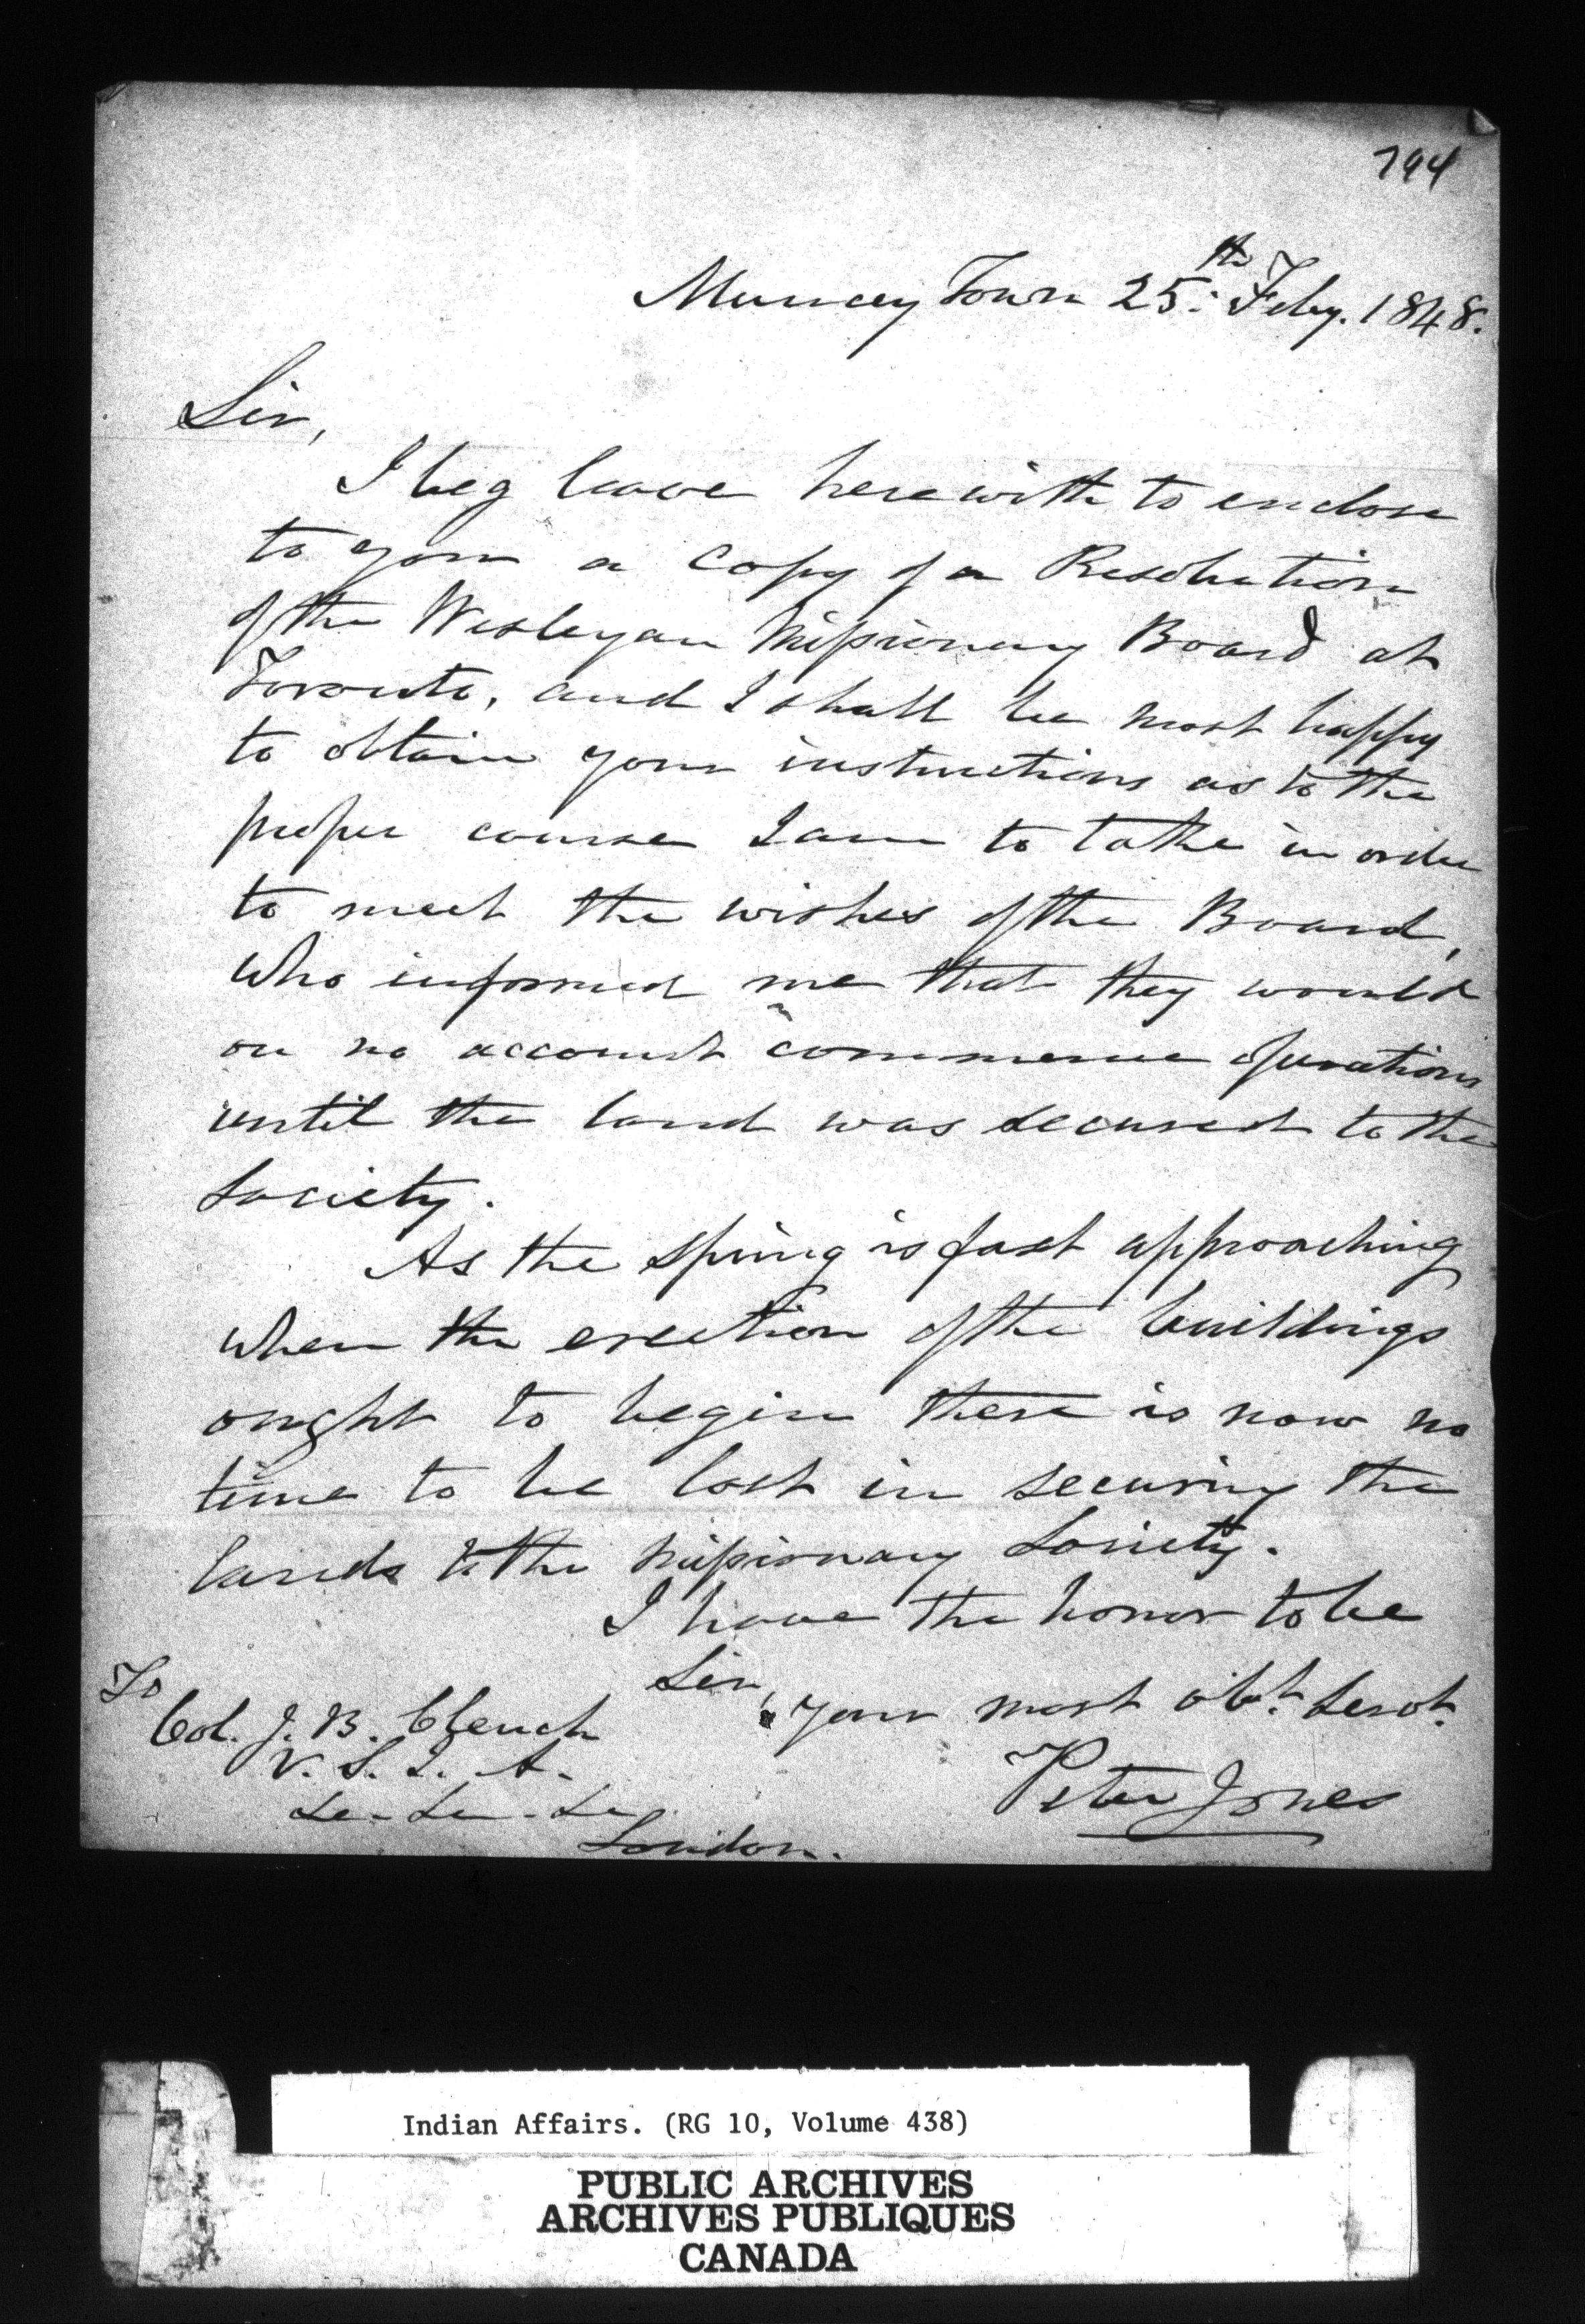 794
Muncey Town 25th Feby. 1848.
Sir,
I beg leave herewith to enclose
to you a Copy of a Resolution
of the Wesleyan Missionary Board at
Toronto, and I shall be most happy
to obtain your instructions as to the
proper course I am to take in order
to meet the wishes of the Board,
who informed me that they would
on no account commence operations
until the land was secured to the
Society.
As the spring is fast approaching
when the erection of the buildings
ought to begin there is now no
time to be lost in securing the
lands to the Missionary Society.
I have the honor to be
Sir,
your most obt. Servt.
Peter Jones
To
Col. J. B. Clench
V. S. I. A.
&c. &c. &c.
London.
Indian Affairs. (RG 10, Volume 438)
PUBLIC ARCHIVES
ARCHIVES PUBLIQUES
CANADA